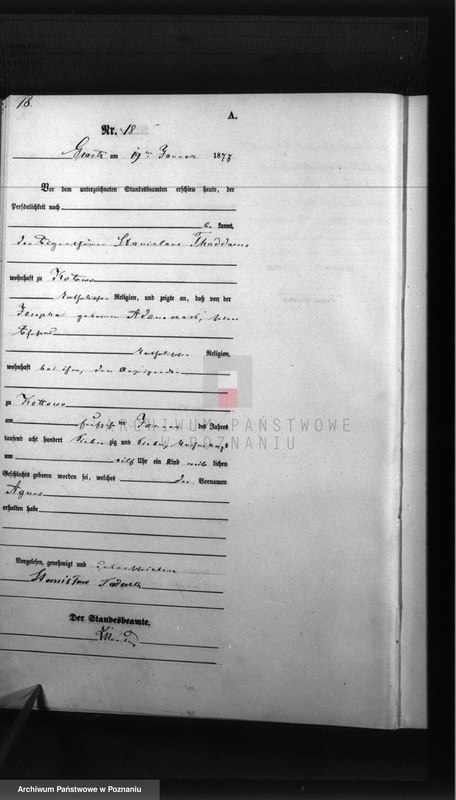 18.
A.
Nr. 18
Graetz am 19ten Januar 1877
Vor dem unterzeichneten Standesbeamten erschien heute, der
Persönlichkeit nach
be kannt,
der Eigenthümer Stanislaus Thaddaeus
wohnhaft zu Kotowo
katholischer Religion, und zeigte an, daß von der
Josepha geborenen Adamczak, seiner
Ehefrau
katholischer Religion,
wohnhaft bei ihm, dem Anzeigenden
zu Kotowo
am ten Januar des Jahres
tausend acht hundert siebenzig und sieben, Nachmittags
um eilf Uhr ein Kind weib lichen
Geschlechts geboren worden sei, welches den Vornamen
Agnes
erhalten habe
Vorgelesen, genehmigt und unterschrieben
Stanisław
Der Standesbeamte.
ARCHIWUM PAŃSTWOWE
W POZNANIU
Archiwum Państwowe w Poznaniu